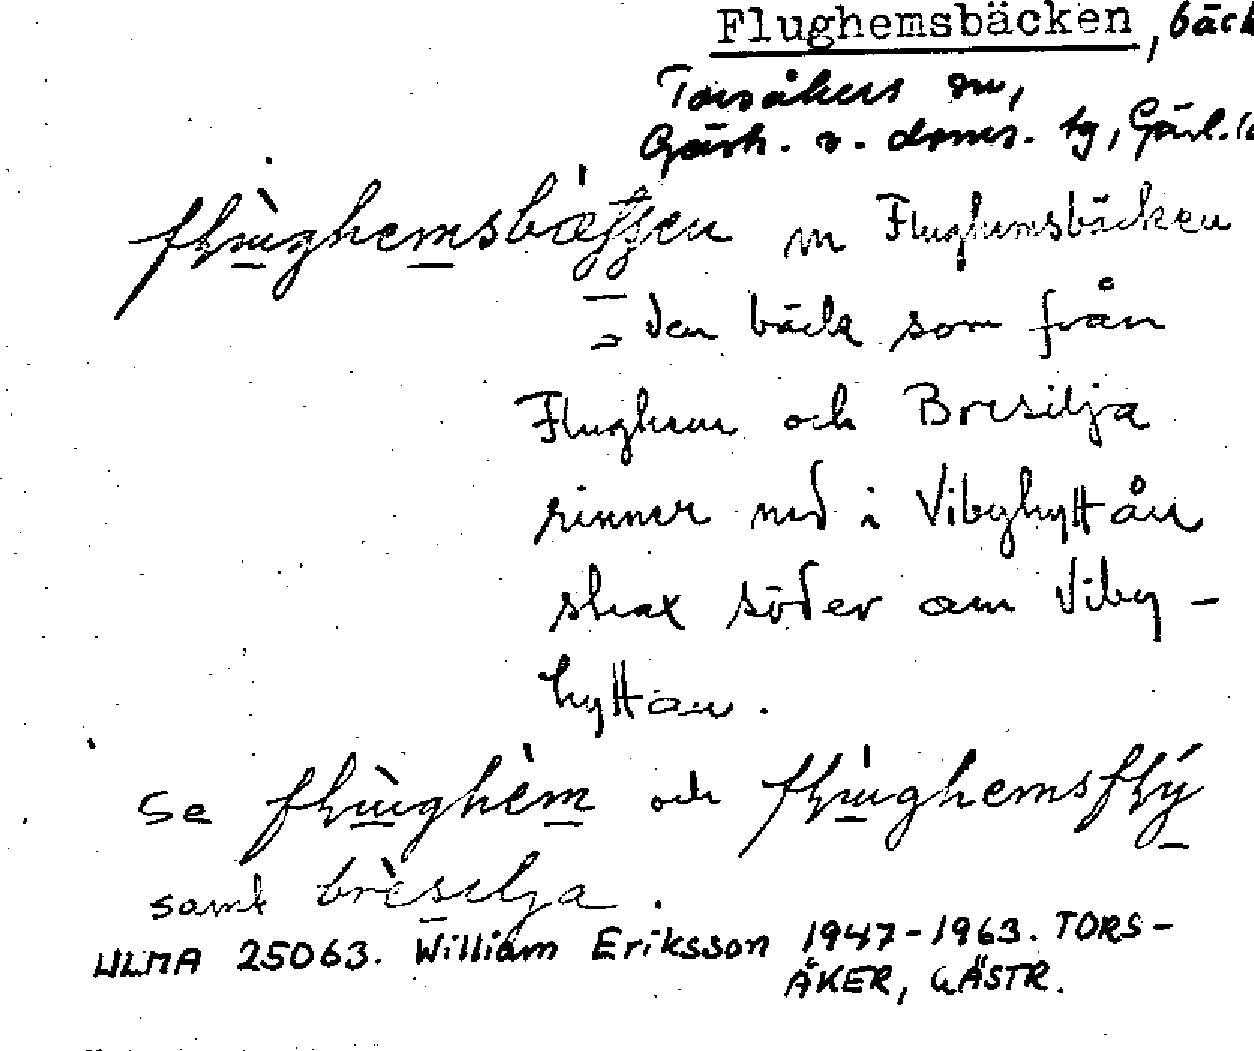 Flughemsbäcken, bäck
Torsåkers sn,
Gästr. ö. doms. tg, Gävl. l
flùghemsbæ̀ʃʃen m Flughemsbäcken
= den bäck som från
Flughem och Bresilja
rinner ned i Vibyhyttån
strax söder om Viby-
hyttan.
Se flùghèm och flùghemsflý
samt brèsilja.
ULMA 25063. William Eriksson 1947-1963. TORS-
ÅKER, GÄSTR.